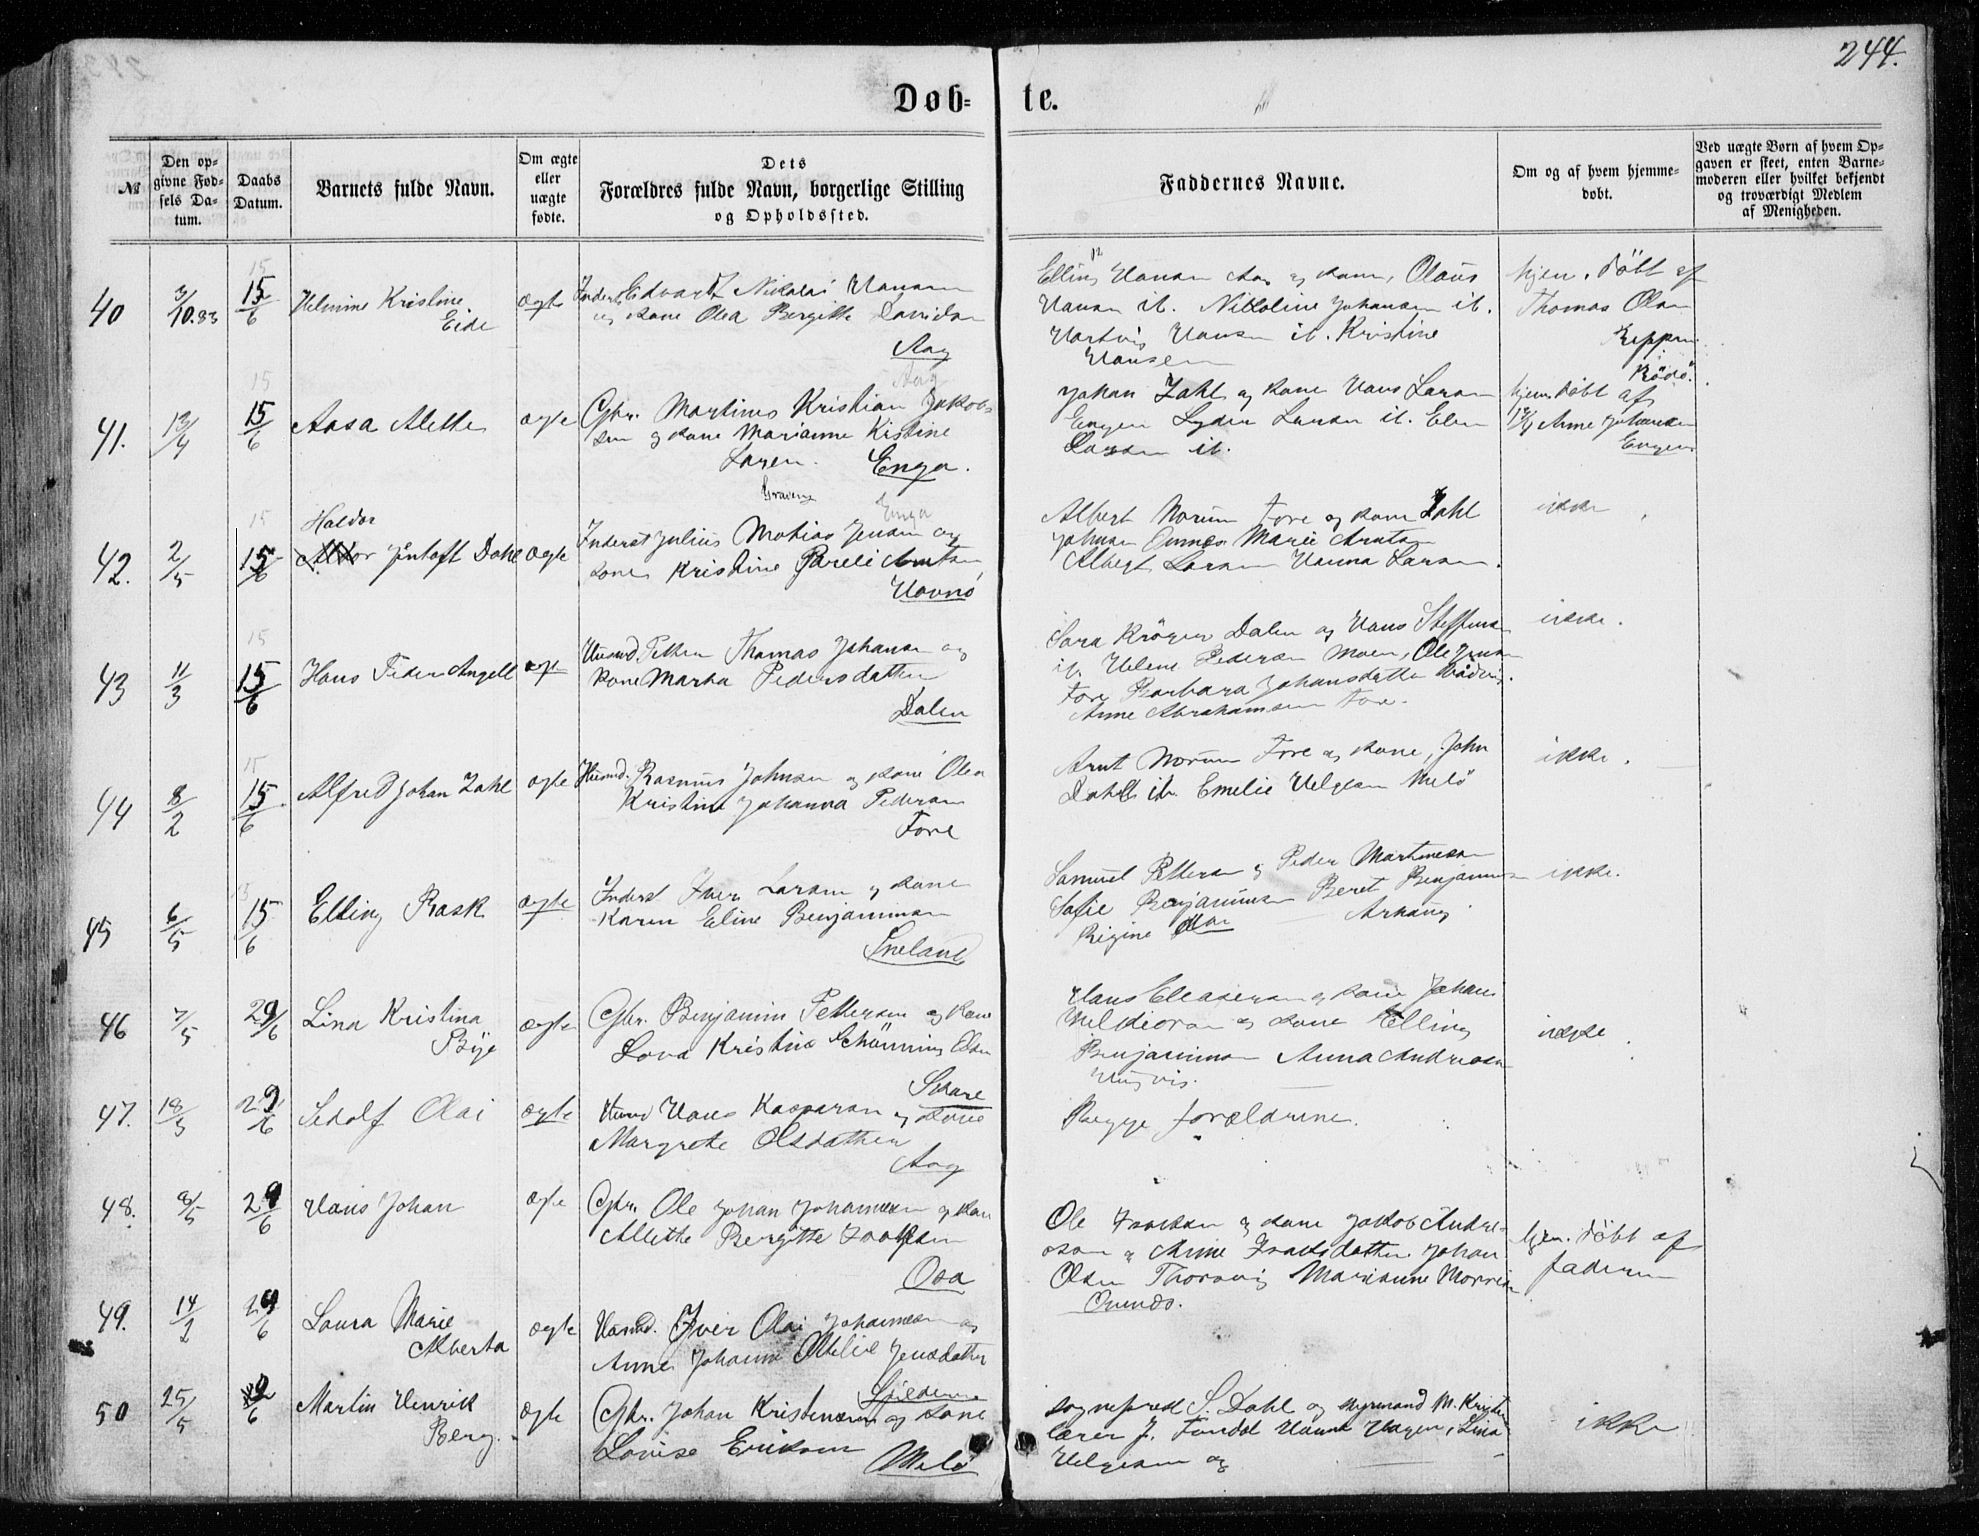 244.
Døb- te.
№
Den op-
givne Fød-
sels Da-
tum.
Daabs
Datum.
Barnets fulde Navn.
Om ægte
eller
uægte
fødte.
Dets
Forældres fulde Navn, borgerlige Stilling
og Opholdssted.
Faddernes Navne.
Om og af hvem hjemme-
døbt.
Ved uægte Børn af hvem Op-
gaven er skeet, enten Barne-
moderen eller hvilket bekjendt
og troværdigt Medlem
af Menigheden.
40 3/10.83 15/6 Helmine Kristine
Eide
ægte
Inderst Edvart Nikolai Hansen
og kone Olea Bergitte Davidsen
Aag
Elling Hansen Aag og kone, Olaus
Hansen ib. Nikoline Johansen ib.
Hartvig Hansen ib. Kristine
Hansen
hjem. døbt af
Thomas Olsen
Rödö.
41. 13/4 15/6 Aasa Alette ægte
Gbr. Martinus Kristian Jakob-
sen og kone Marianne Kistine
Larsen. Enga.
Johan Zahl og kone Hans Larsen
Engen Lyder Larsen ib. Elen
Larsen ib.
hjem. døbt af
Arne Johansen
Engen
42. 2/5 15/6 Haldor
Jentoft Dahl ægte
Inderst Julius Mathias Jensen og
kone Kristine Pareli Arntsen
Havnö
Albert Norum Fore og kone Zahl
Johnsen Ounes Marie Arntsen
Albert Larsen Hanna Larsen.
ikke
43 11/3 15/6 Hans Peder Angell ægte
Husmd Petter Thomas Johansen og
kone Marta Pedersdatter
Dalen
Sara Kröger Dalen og Hans Steffensen
ib. Helene Pedersen Moen, Ole Jensen
Fore Barbara Johansdatter
Anne Abrahamsen Fore.
ikke.
44 8/2 15/6 Alfred Johan Zahl ægte
Husmd. Rasmus Johnsen og kone Olea
Kristine Johanna Pedersen
Fore
Arnt Norum Fore og kone, John
Dahl ib. Emelie Helgesen Melö
ikke.
45 6/5 15/6 Elling Rask ægte
Inderst Iver Larsen og kone
Karen Eline Benjaminsen
Samuel Pettersen og Peder Martinesen
Sofie Benjaminsen Beret Benjaminsen
Regine Arhaug
ikke.
46 7/5 29/6 Lina Kristina
Bye
ægte
Gbr. Benjamin Pettersen og kone
Lova Kristine Schönning Olsen
Skare
Hans Eleasersen og kone Johan
Melkiorsen og kone Elling
Benjaminsen Anna Andreasen
ikke
47. 18/3 29/6 Sedolf Olai ægte
Husmd Hans Kaspersen og kone
Margrete Olsdatter
Aag
Begge forældrene.
48. 8/5 29/6 Hans Johan ægte
Gbr. Ole Johan Johannesen og kone
Allette Bergitte Isaksen
Osa
Ole Isaksen og kone Jakob Andre-
asen og Anne Isaksdatter Johan
Olsen Thorsvig Marianne
Ounes.
hjem. döbt af
faderen
49. 14/2 29/6 Laura Marie
Alberta
ægte
Husmd. Iver Olai Johannesen og
Anne Johanne Otelie Jensdatter
Spilderen
50 25/5 29/6 Martin Henrik
Berg.
ægte
Gbr. Johan Kristensen og kone
Lovise Eriksen
Melö
Sognepred S. Dahl og M. Kristen
lærer J. Fondal Hanna Hagen, Lina
Helgesen og
ikke